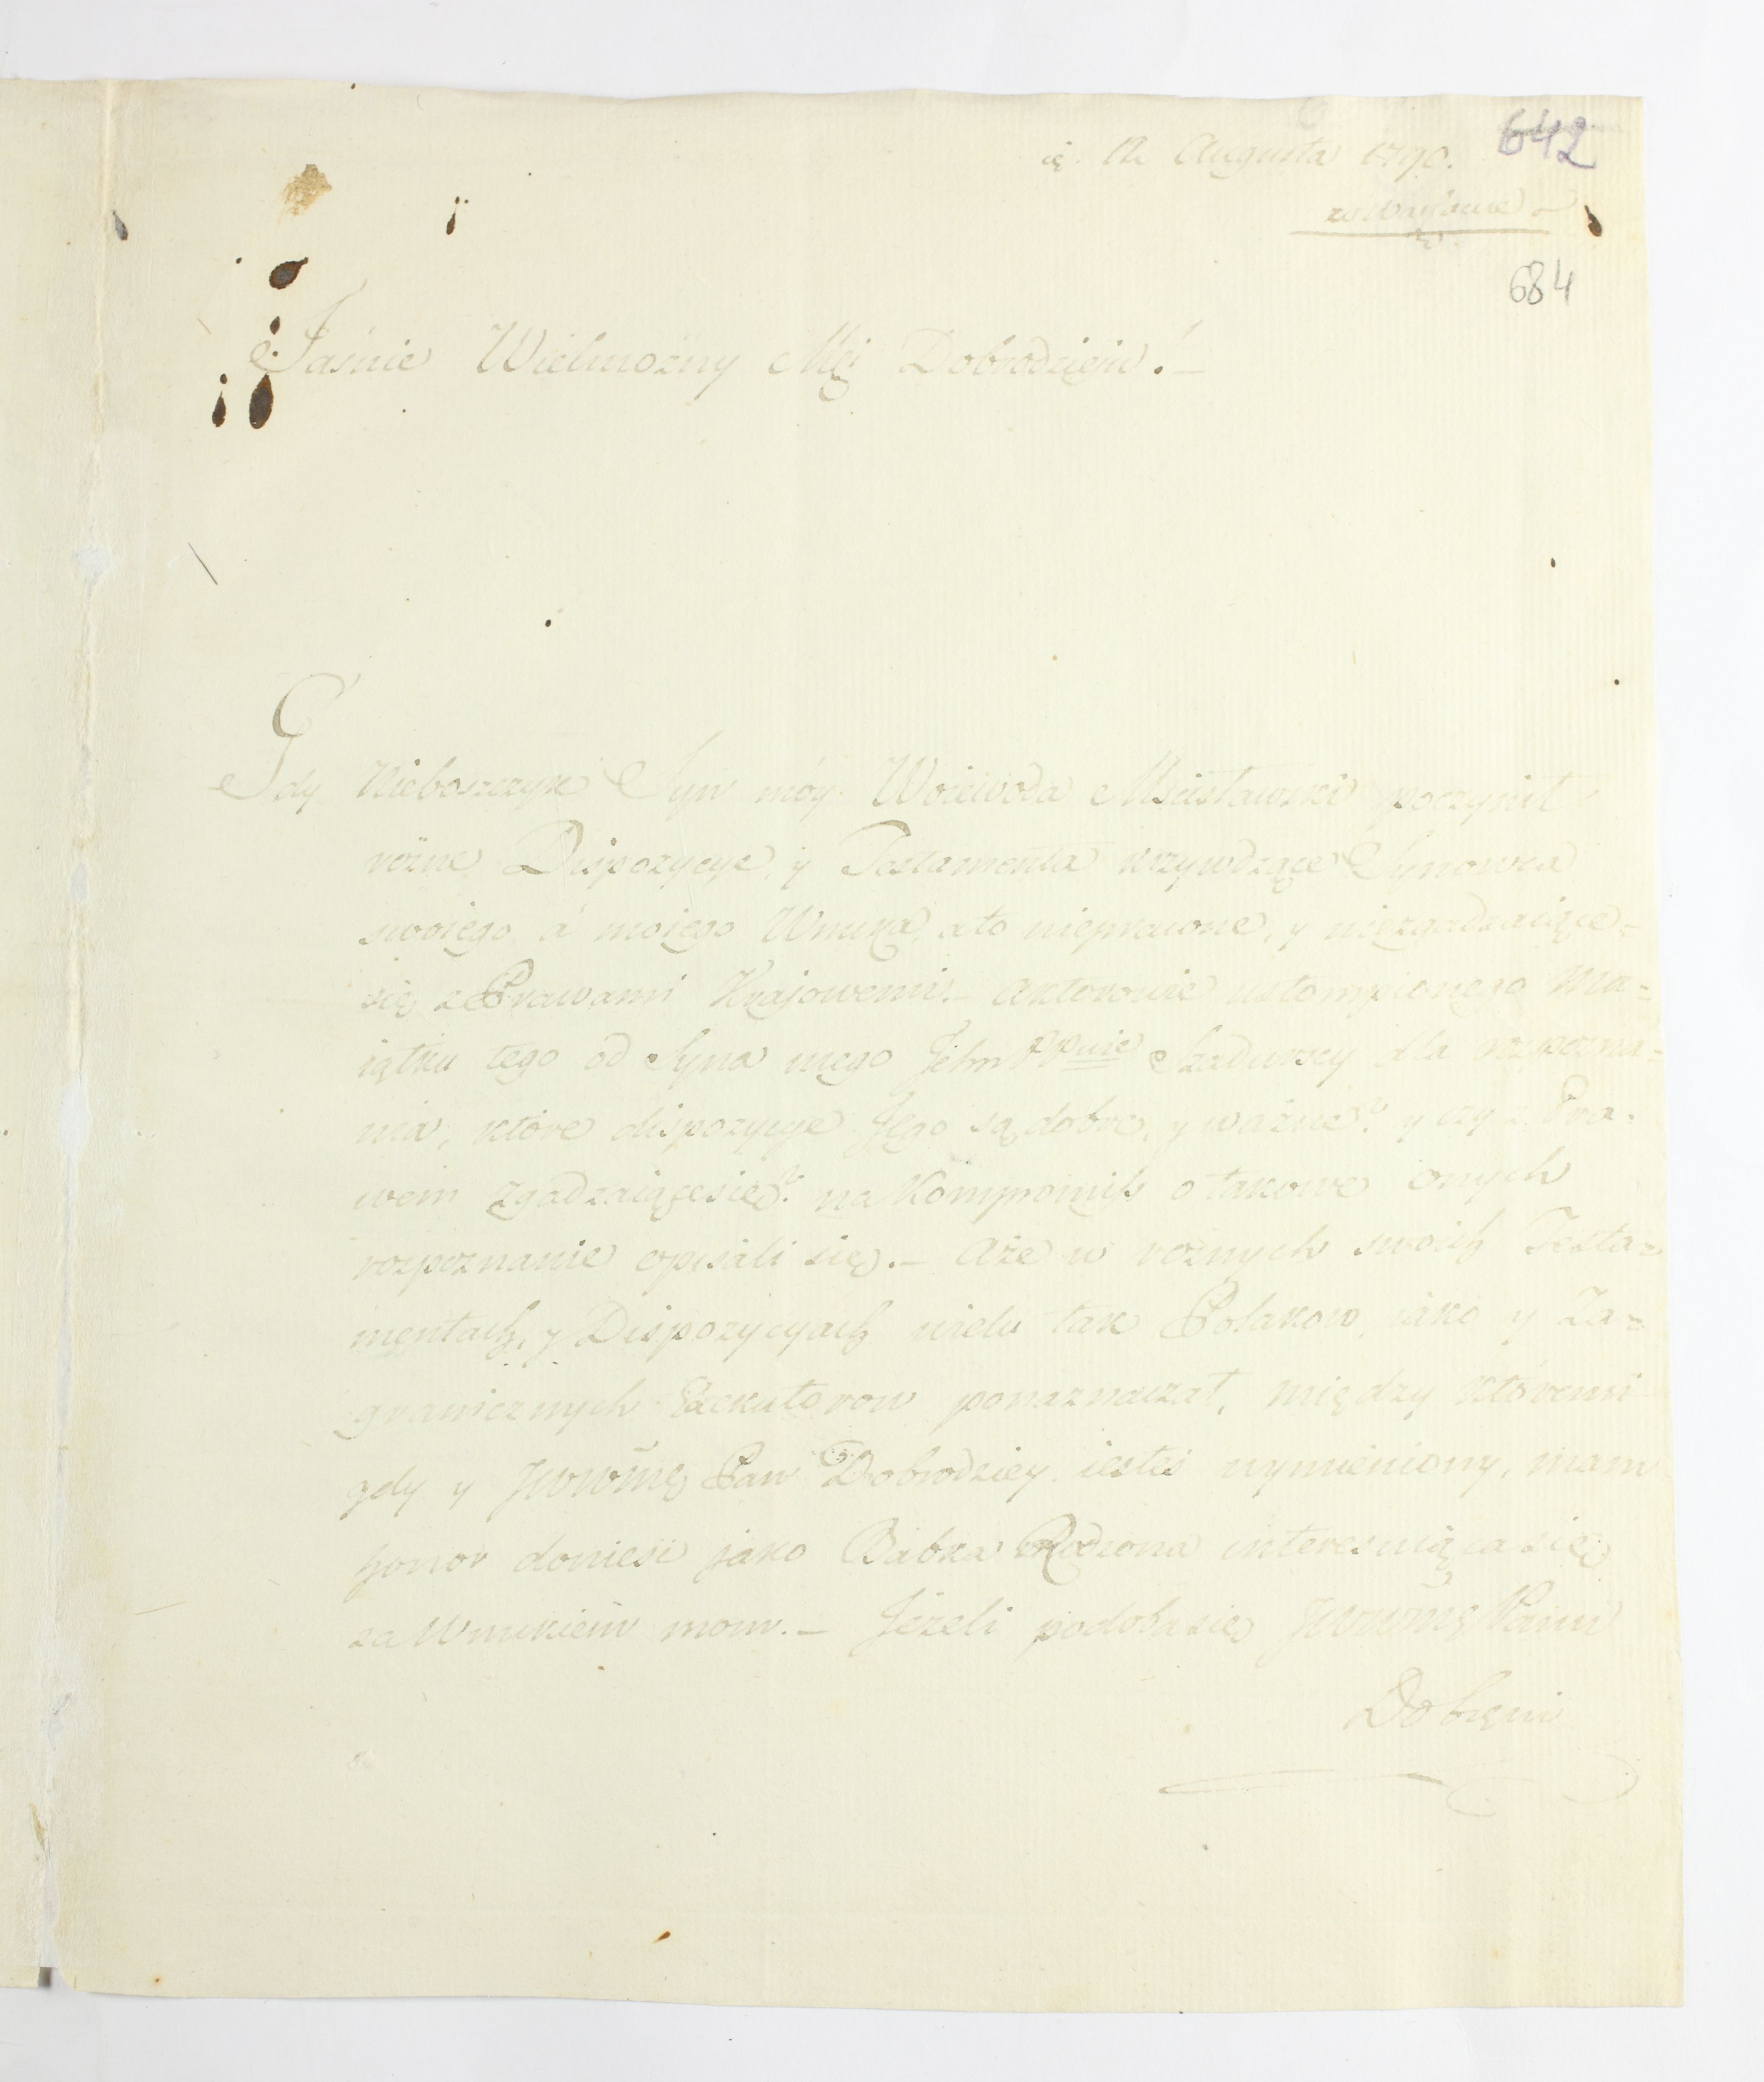 12 Augusta 1790. 642
684
Jaśnie Wielmożny Mći Dobrodzieju! –
Gdy Nieboszczyk Syn móy Woiewoda Mścisławski poczynił
rożne Dispozycye, y Testamenta krzywdzące Synowca
swoiego, á mojego Wnuka, a to nieprawne, y niezgadzaiące=
się z Prawami Krajowemi. – Aktorowie ustompionego Ma=
iątku tego od Syna mego Szadurscy dla rozpozna=
nia, które dispozycye Jego są dobre, y ważne? y czy z Pra=
wem zgadzaiącesię? na Kompromiss o takowe onych
rozpoznanie opisali się. – Aże w rożnych swoich Testa=
mentach, y Dispozycyach wielu tak Polakow, iako y Za=
granicznych Exekutorow ponaznaczał, między któremi
gdy y JWWMę Pan Dobrodziey iesteś wymieniony, mam
honor donieść jako Babka Rodzona interesuiącasię
za Wnukiem mom. – Jeżeli podobasię JWWMę Panu